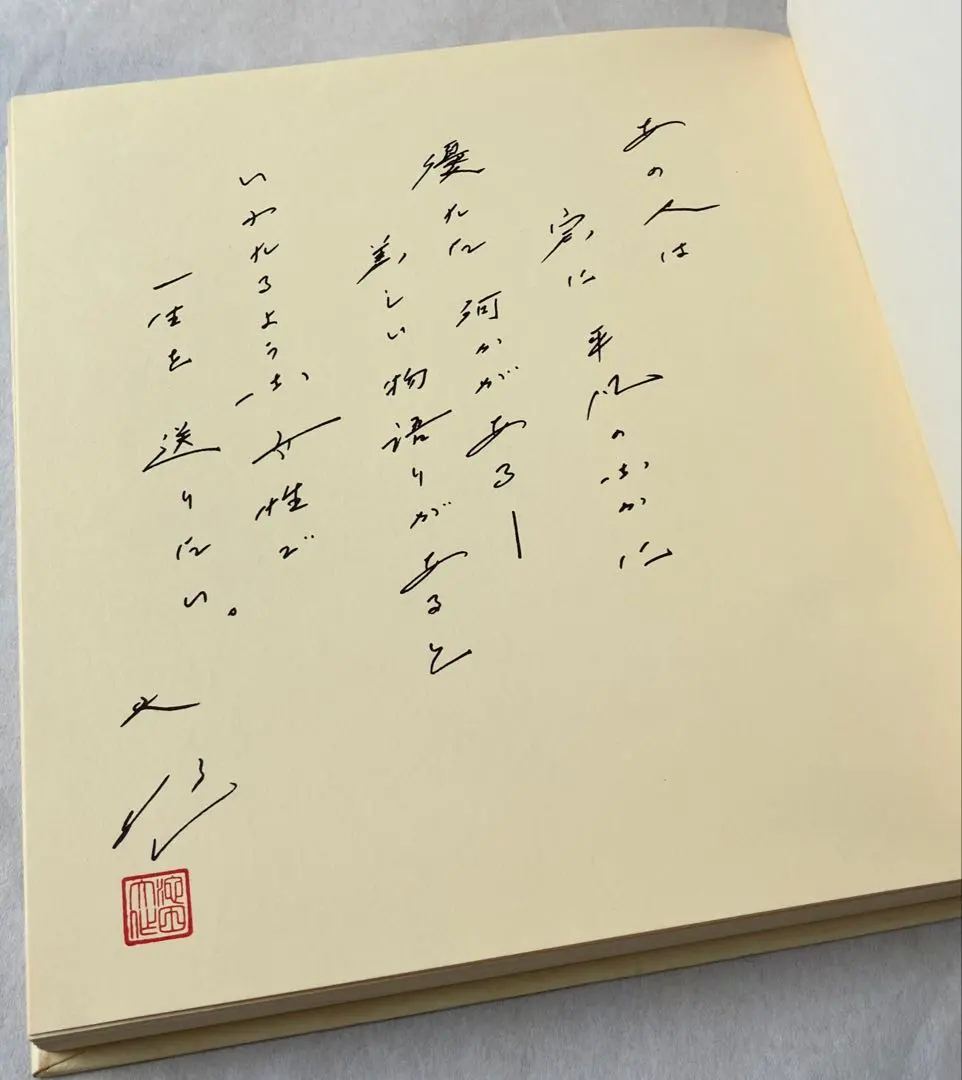 あの人は
実に 平凡のなかに
優れた 何かがある―
美しい物語りがあると
いわれるような 女性で
一生を 送りたい。
大作